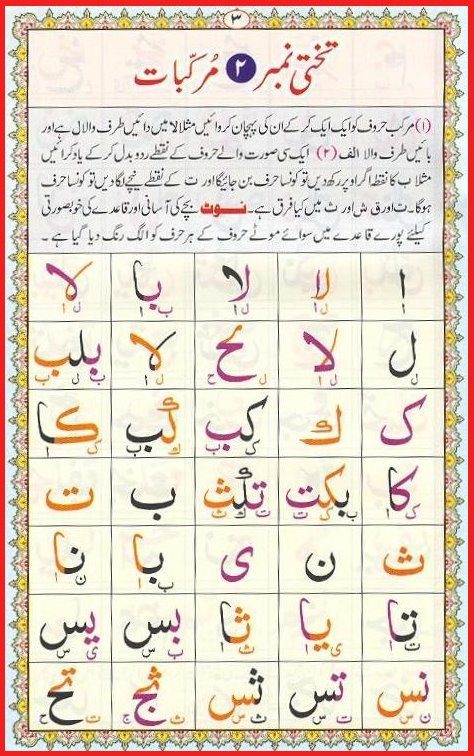 ٣
تختی نمبر ٢ مُرکّبات
(١) مرکب حروف کو ایک ایک کر کے ان کی پہچان کروائیں مثلا لا میں دائیں طرف والا ل ہے اور
بائیں طرف والا الف (٢) ایک سی صورت والے حروف کے نقطے ردو بدل کر کے یاد کرائیں
مثلا ب کا نقطہ اگر اوپر رکھ دیں تو کونسا حرف بن جائیگا اور ت کے نقطے نیچے لگا دیں تو کونسا حرف
ہوگا۔ ت اور ق ش اور ث میں کیا فرق ہے۔ نوٹ بچے کی آسانی اور قاعدے کی خوبصورتی
کیلئے پورے قاعدے میں سوائے موٹے حروف کے ہر حرف کو الگ رنگ دیا گیا ہے ۔
ا لا لا با لا
ل ا ل ا ب ا ل ا
ل لا لح لا بلب
ل ا ل ح ل ا ب ل ب
ک ك کب کب کا
ک ب ک ب ک ا
کا بکت تلث ب ت
ک ا ب ک ت ت ل ث
ث ن ی با نا
ب ا ن ا
تا یا ثا بس یس
ت ا ی ا ث ا ب س ی س
نس تس ثس ثج تح
ن س ت س ث س ث ج ت ح